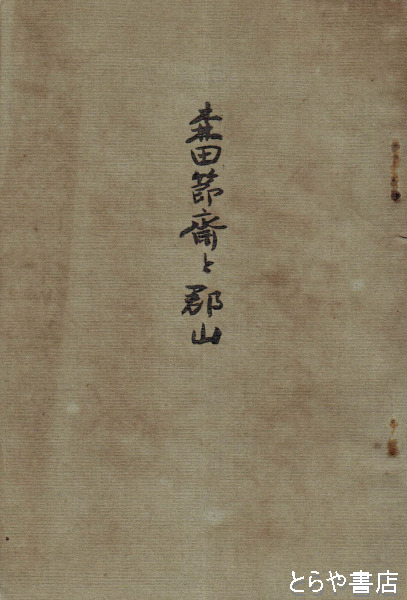 森田節斎と郡山
とらや書店